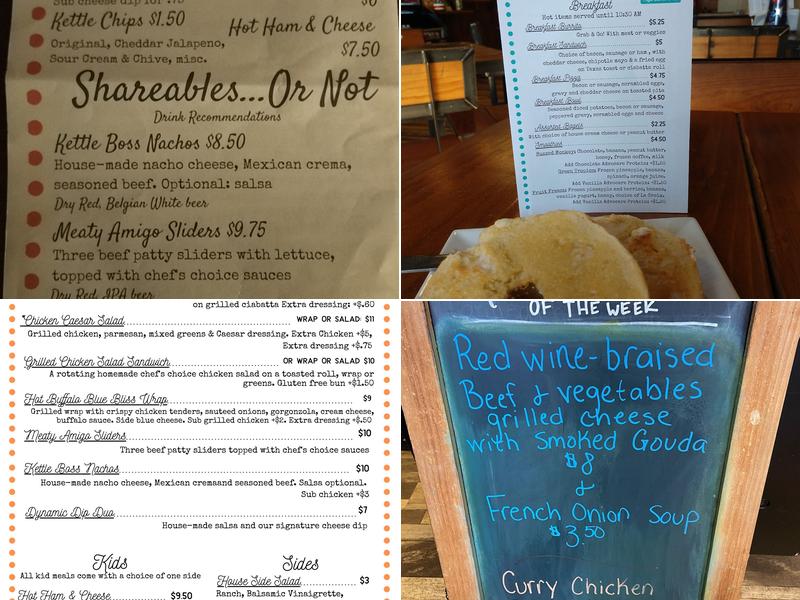 Sub cheese dip for .75
$6
Kettle Chips $1.50
Original, Cheddar Jalapeno,
Sour Cream & Chive, misc.
Hot Ham & Cheese
$7.50
Shareables...Or Not
Drink Recommendations
Kettle Boss Nachos $8.50
House-made nacho cheese, Mexican crema,
seasoned beef. Optional: salsa
Dry Red, Belgian White beer
Meaty Amigo Sliders $9.75
Three beef patty sliders with lettuce,
topped with chef's choice sauces
Dry Red, IPA beer
Breakfast
Hot items served until 10:30 AM
Breakfast Burrito $5.25
Grab & Go! With meat or veggies
Breakfast Sandwich $5
Choice of bacon, sausage or ham, with
cheddar cheese, chipotle mayo & a fried egg
on Texas toast or ciabatta roll
Breakfast Pizza $4.75
Bacon or sausage, scrambled eggs,
gravy and cheddar cheese on toasted pita
Breakfast Bowl $4.50
Seasoned diced potatoes, bacon or sausage,
peppered gravy, scrambled eggs and cheese
Assorted Bagels $2.25
With choice of house cream cheese or peanut butter
Smoothies $4.50
Buzzed Monkey: Chocolate, banana, peanut butter,
honey, frozen coffee, milk
Add Chocolate Advocare Protein: +$1.50
Green Frozen pineapple, banana,
spinach, orange juice.
Add Vanilla Advocare Protein: +$1.50
Fruit Frenzy: Frozen pineapple and berries, banana,
vanilla yogurt, honey, choice of La Croix.
Add Vanilla Advocare Protein: +$1.50
on grilled ciabatta Extra dressing: +$.60
*Chicken Caesar Salad WRAP OR SALAD: $11
Grilled chicken, parmesan, mixed greens & Caesar dressing. Extra Chicken +$5,
Extra dressing +$.75
Grilled Chicken Salad Sandwich OR WRAP OR SALAD $10
A rotating homemade chef's choice chicken salad on a toasted roll, wrap or
greens. Gluten free bun +$1.50
Hot Buffalo Blue Bliss Wrap $9
Grilled wrap with crispy chicken tenders, sauteed onions, gorgonzola, cream cheese,
buffalo sauce. Side blue cheese. Sub grilled chicken +$2. Extra dressing +$.50
Meaty Amigo Sliders $10
Three beef patty sliders topped with chef's choice sauces
Kettle Boss Nachos $10
House-made nacho cheese, Mexican cremaand seasoned beef. Salsa optional.
Sub chicken +$3
Dynamic Dip Duo $7
House-made salsa and our signature cheese dip
Kids
All kid meals come with a choice of one side
Hot Ham & Cheese $9.50
Sides
House Side Salad $3
Ranch, Balsamic Vinaigrette,
OF THE WEEK
Red wine-braised
Beef & vegetables
grilled cheese
with Smoked Gouda
$8
&
French Onion Soup
$3.50
Curry Chicken